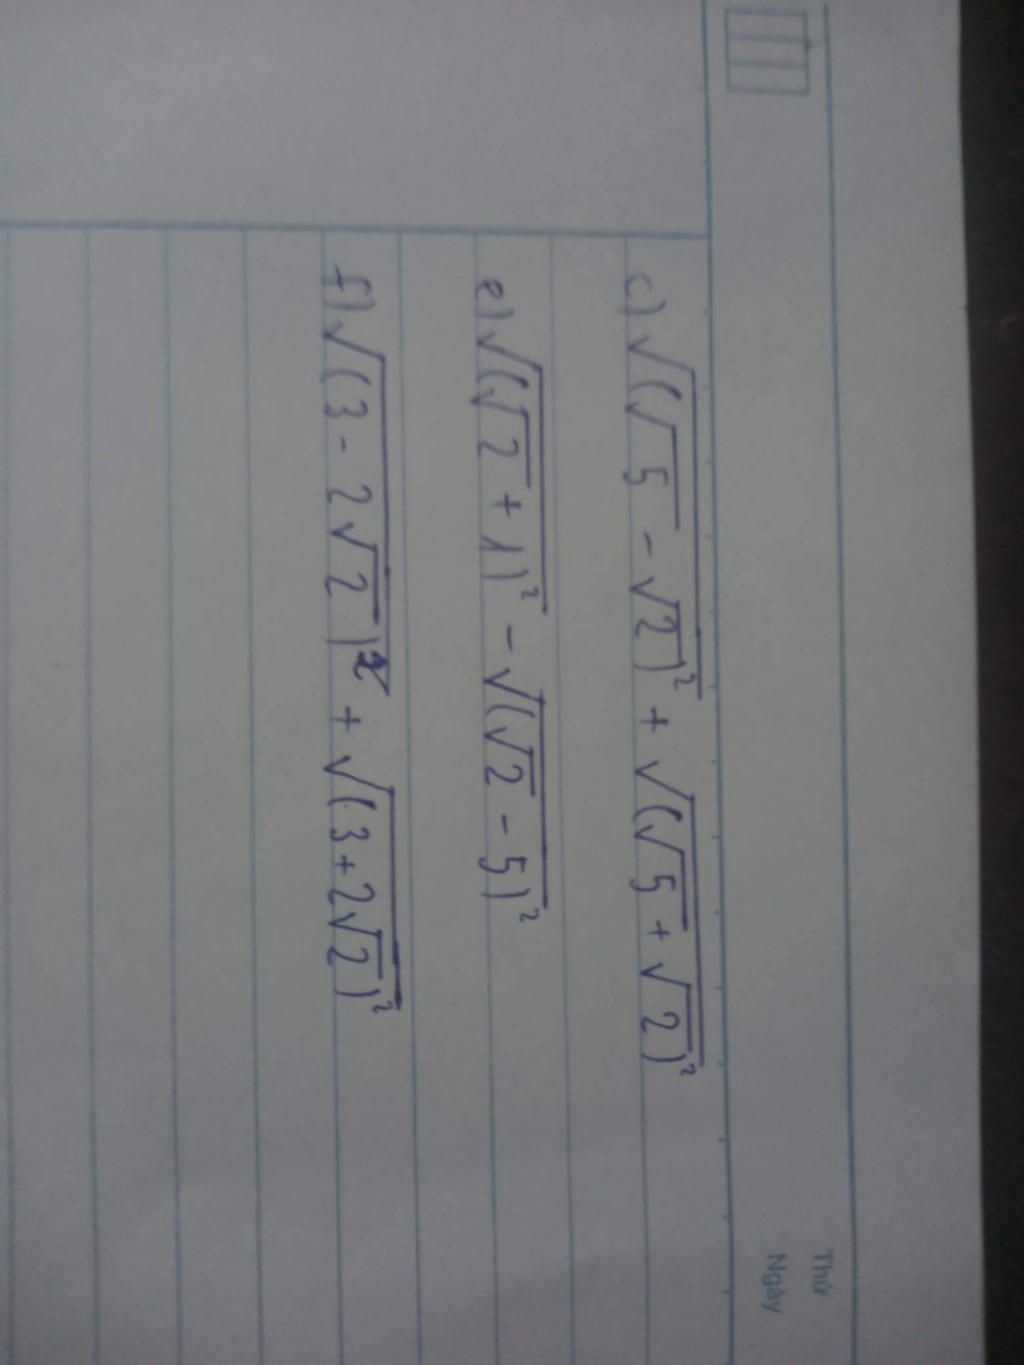 Thứ
Ngày
c) √(√5 - √2)² + √(√5 + √2)²
e) √(√2 + 1)² - √(√2 - 5)²
f) √(3 - 2√2)² + √(3 + 2√2)²